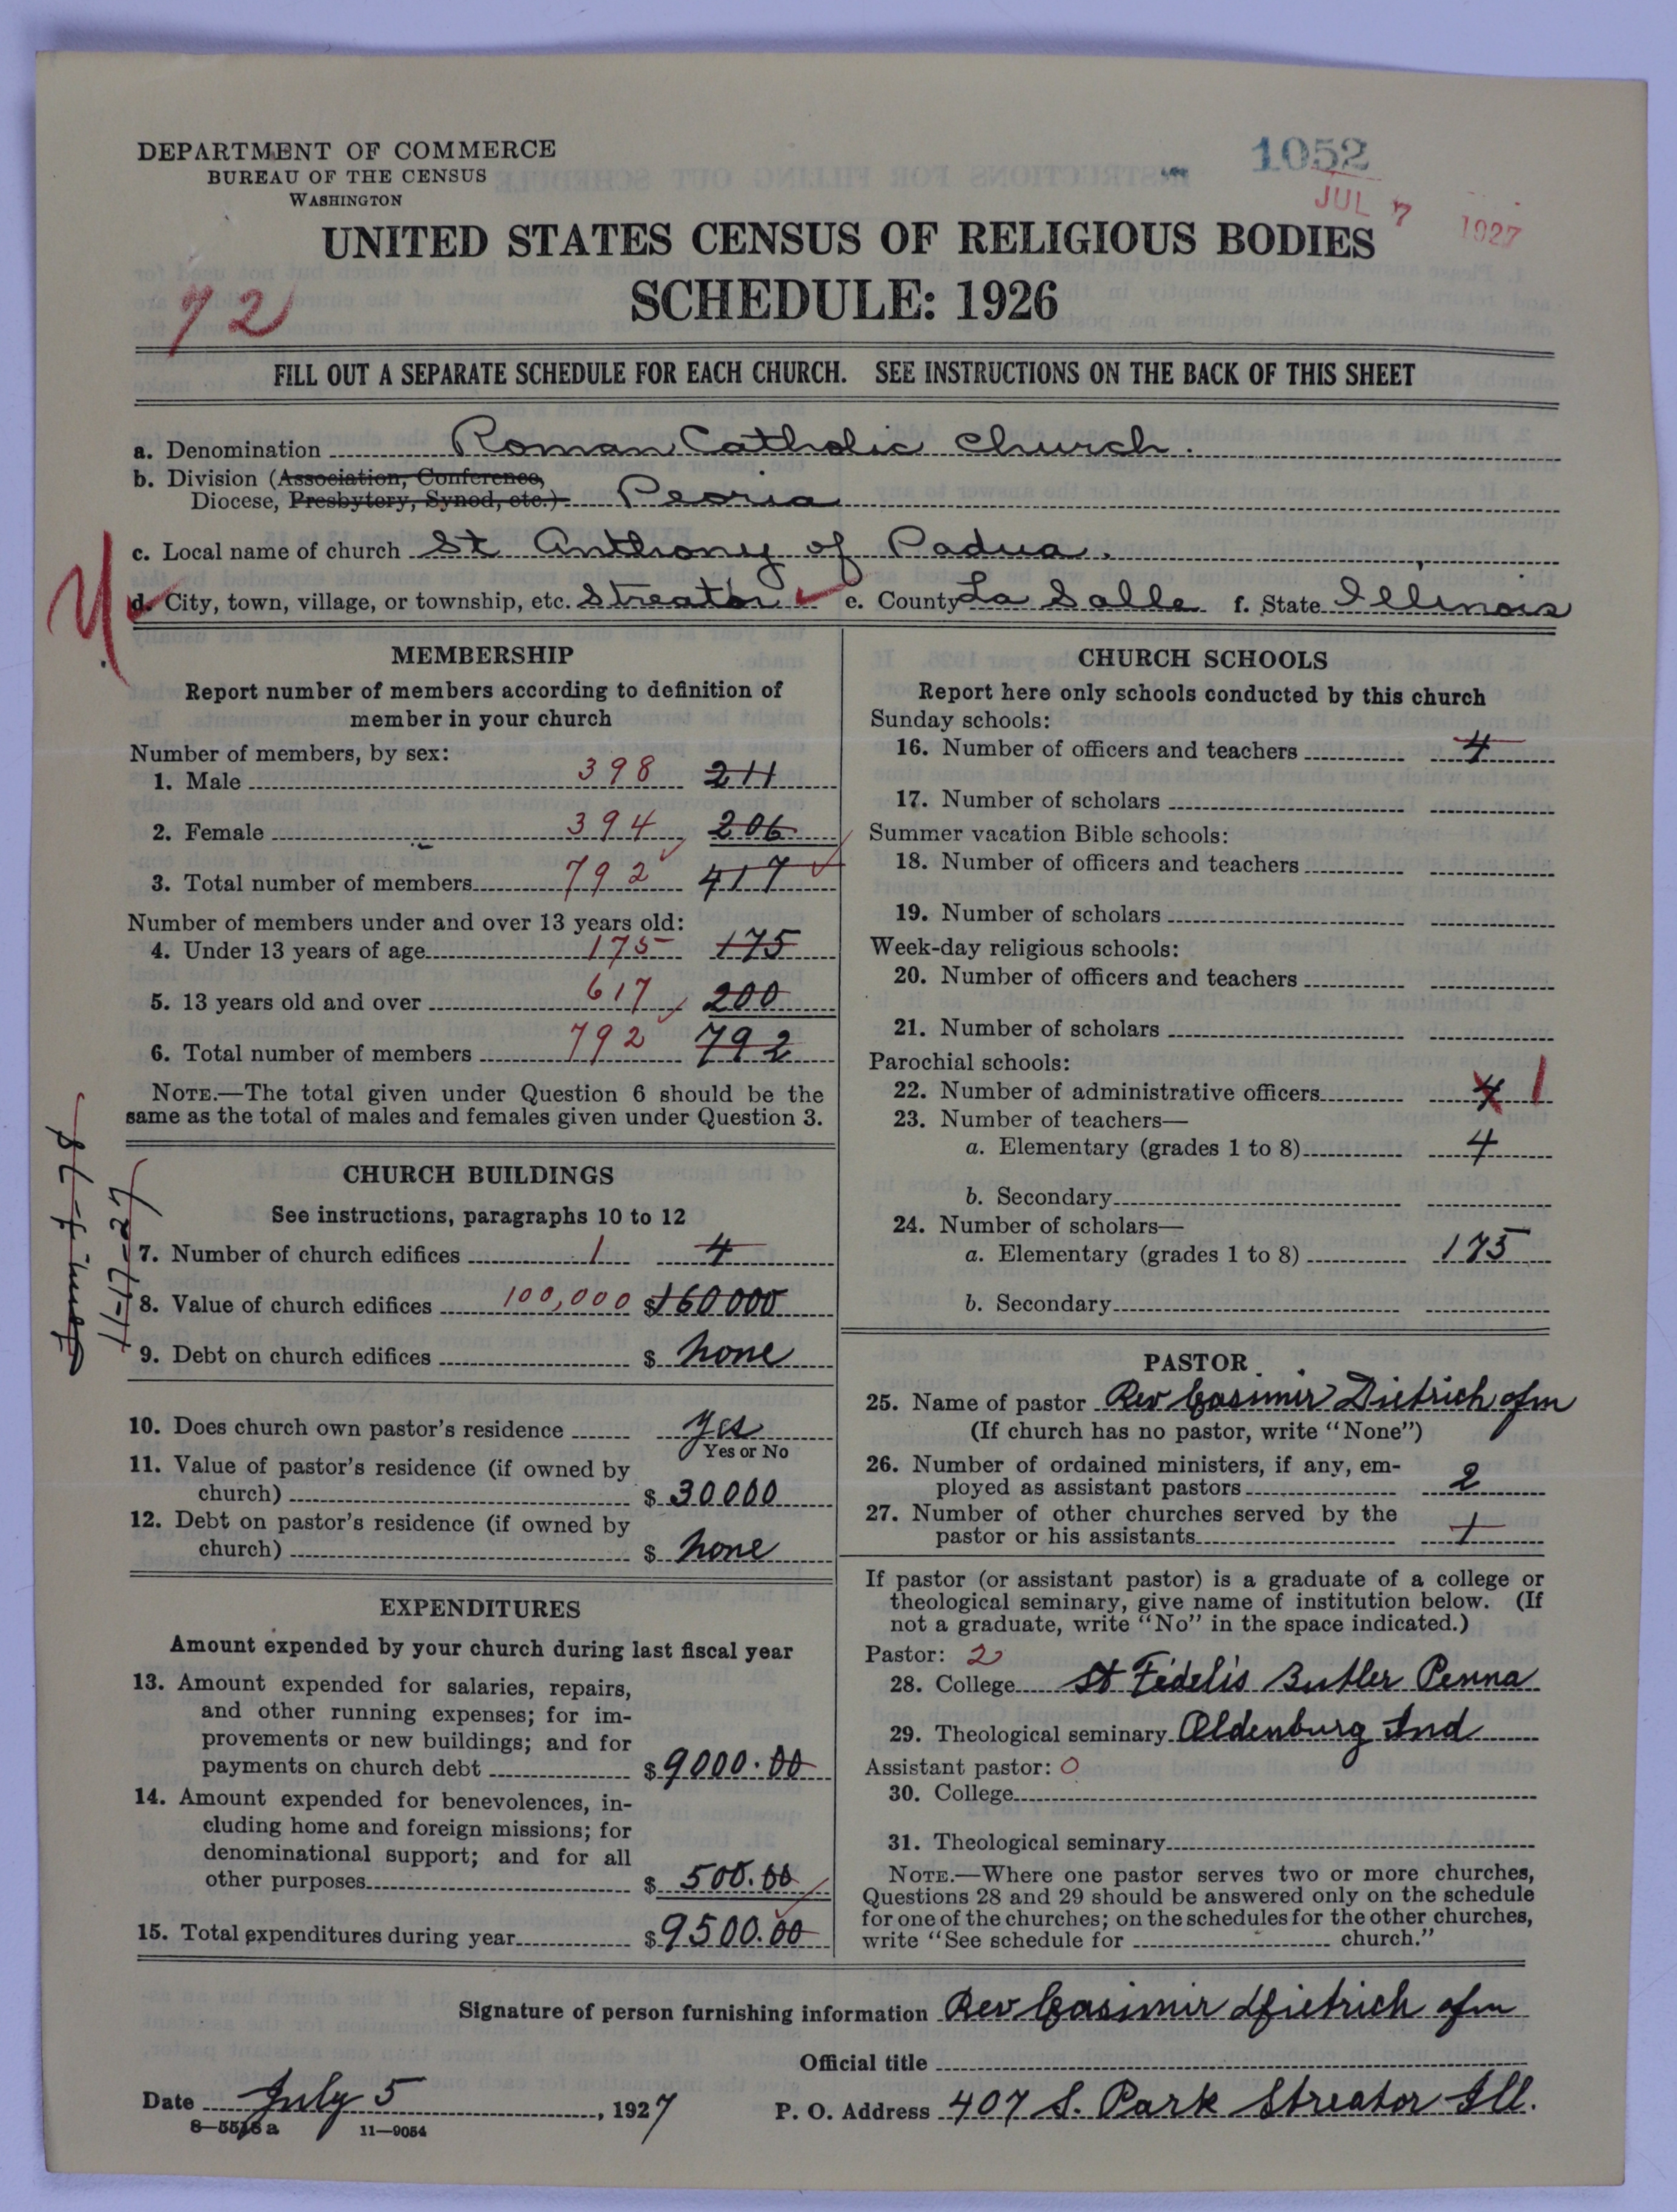 DEPARTMENT OF COMMERCE
BUREAU OF THE CENSUS
WASHINGTON
1052
JUL 7 1927
UNITED STATES CENSUS OF RELIGIOUS BODIES
SCHEDULE: 1926
72
FILL OUT A SEPARATE SCHEDULE FOR EACH CHURCH. SEE INSTRUCTIONS ON THE BACK OF THIS SHEET
a. Denomination Roman Catholic Church.
b. Division (Association, Conference,
Diocese, Presbytery, Synod, etc.) Peoria
c. Local name of church St Anthony of Padua.
d. City, town, village, or township, etc. Streator e. County La Salle f. State Illinois
MEMBERSHIP
Report number of members according to definition of
member in your church
Number of members, by sex:
1. Male 398 211
2. Female 394 206
3. Total number of members 792 417
Number of members under and over 13 years old:
4. Under 13 years of age 175 175
5. 13 years old and over 617 200
6. Total number of members 792 792
NOTE.—The total given under Question 6 should be the
same as the total of males and females given under Question 3.
CHURCH BUILDINGS
See instructions, paragraphs 10 to 12
7. Number of church edifices 1 4
8. Value of church edifices 100,000 $160000
9. Debt on church edifices $ none
10. Does church own pastor's residence yes
Yes or No
11. Value of pastor's residence (if owned by
church) $ 30000
12. Debt on pastor's residence (if owned by
church) $ none
EXPENDITURES
Amount expended by your church during last fiscal year
13. Amount expended for salaries, repairs,
and other running expenses; for im-
provements or new buildings; and for
payments on church debt $9000.00
14. Amount expended for benevolences, in-
cluding home and foreign missions; for
denominational support; and for all
other purposes $ 500.00
15. Total expenditures during year $9500.00
11-17-27
CHURCH SCHOOLS
Report here only schools conducted by this church
Sunday schools:
16. Number of officers and teachers 4
17. Number of scholars
Summer vacation Bible schools:
18. Number of officers and teachers
19. Number of scholars
Week-day religious schools:
20. Number of officers and teachers
21. Number of scholars
Parochial schools:
22. Number of administrative officers 4 1
23. Number of teachers—
a. Elementary (grades 1 to 8) 4
b. Secondary
24. Number of scholars—
a. Elementary (grades 1 to 8) 175
b. Secondary
PASTOR
25. Name of pastor Rev Casimir Dietrich ofm
(If church has no pastor, write "None")
26. Number of ordained ministers, if any, em-
ployed as assistant pastors 2
27. Number of other churches served by the
pastor or his assistants 1
If pastor (or assistant pastor) is a graduate of a college or
theological seminary, give name of institution below. (If
not a graduate, write "No" in the space indicated.)
Pastor: 2
28. College St Fidelis Butler Penna
29. Theological seminary Oldenburg Ind
Assistant pastor: 0
30. College
31. Theological seminary
NOTE.—Where one pastor serves two or more churches,
Questions 28 and 29 should be answered only on the schedule
for one of the churches; on the schedules for the other churches,
write "See schedule for church."
Signature of person furnishing information Rev Casimir Dietrich ofm
Official title
Date July 5, 1927
P. O. Address 407 S. Park Streator Ill.
8—5518a 11—9054